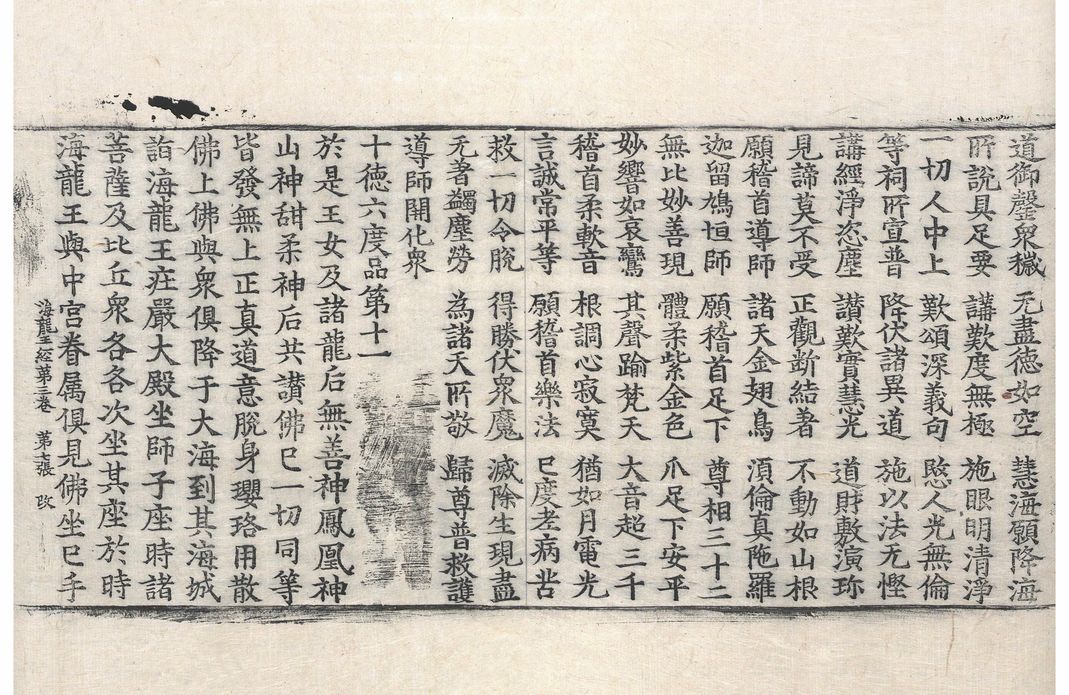 道御罄衆穢　无盡德如空　慧海願降海
所說具足要　講歎度無極　施眼明清淨
一切人中上　歎頌深義句　愍人光無倫
等祠所宣普　降伏諸異道　施以法无慳
講經淨恣塵　讃歎寶慧光　道財敷演珎
見諦莫不受　正觀断結著　不動如山根
願稽首導師　諸天金翅鳥　湏倫真陁羅
迦留鳩恒師　願稽首足下　尊相三十二
無比妙善現　體柔紫金色　爪足下安平
妙響如哀鸞　其聲踰梵天　大音超三千
稽首柔軟音　根調心寂寞　猶如月電光
言誠常平等　願稽首樂法　已度老病苦
救一切令脫　得勝伏衆魔　滅除生現盡
无著蠲塵勞　為諸天所敬　歸尊普救護
導師開化衆
十德六度品第十一
於是王女及諸龍后無善神鳳凰神
山神甜柔神后共讃佛已一切同等
皆發無上正真道意脫身瓔珞用散
佛上佛與衆俱降于大海到其海城
詣海龍王㽵嚴大殿坐師子座時諸
菩薩及比丘衆各各次坐其座於時
海龍王與中宫眷属俱見佛坐已手
海龍王經第三卷　第七張　改